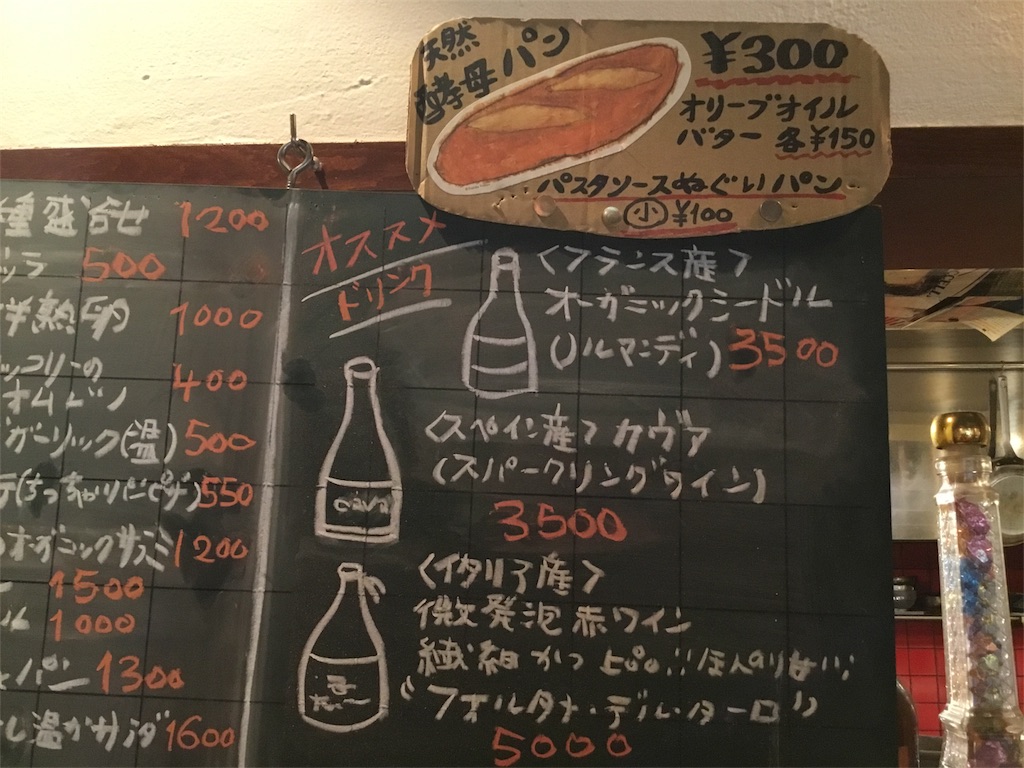 天然
酵母パン
¥300
オリーブオイル
バター 各¥150
パスタソースぬぐいパン
小 ¥100
盛合せ 1200
ッラ 500
半熟卵 1000
ッコリーの
オムレツ 400
ガーリック(温) 500
(ちっちゃいパンピザ) 550
オーガニックサラミ 1200
1500
1000
パン 1300
し温かサラダ 1600
オススメ
ドリンク
〈フランス産〉
オーガニックシードル
(ノルマンディ) 3500
〈スペイン産〉カヴァ
(スパークリングワイン)
3500
cava
〈イタリア産〉
微発泡赤ワイン
繊細かつ ほんのり甘い
"フォルタナ・デル・ターロ"
5000